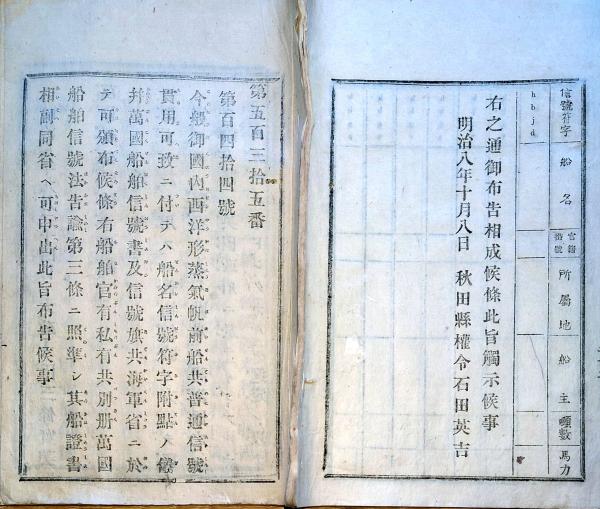 信號符字
hbjd
船名
官籍番號
所屬地
船主
噸數
馬力
右之通御布告相成候條此旨觸示候事
明治八年十月八日 秋田縣權令石田英吉
第五百三拾五番
第百四拾四號
今般御國內西洋形蒸氣帆前船共普通信號
貫用可致ニ付テハ船名信號符字附點ノ儀
幷萬國船舶信號書及信號旗共海軍省ニ於
テ可頒布候條右船舶官有私有共別册萬國
船舶信號法告諭第三條ニ照準シ其船證書
相副同省ヘ可申出此旨布告候事